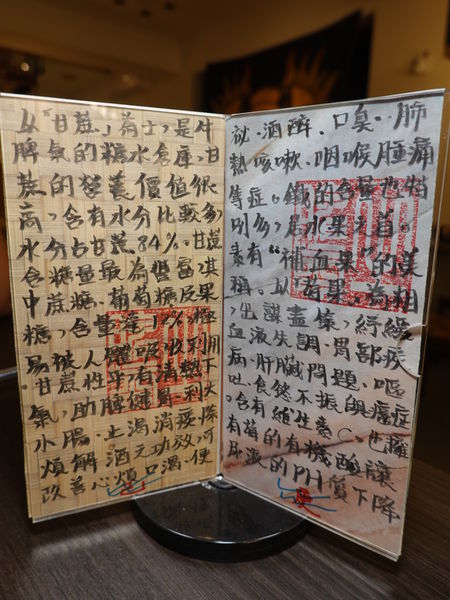 以「甘蔗」為士，是牛
脾氣的糖水倉庫，甘
蔗的營養價值很
高，含有水分比較多
水分占甘蔗84%。甘蔗
含糖量最為豐富，淇
中蔗糖、葡萄糖及果
糖，含量 %，極
易被人體吸收利用
。甘蔗性平，有清熱下
氣，助脾健胃、利大
小腸、止渴消痰、除
煩解酒之功效，可
改善心煩口渴、便
祕．酒醉．口臭．肺
熱咳嗽．咽喉腫痛
等症。鐵的含量也
別多，是水果之首。
素有“補血果”的美
稱。以“莓果”為相
，出謀畫策，紓緩
血液失調．胃部疾
病．肝臟問題．嘔
吐．食慾不振與癌症
。含有維生素C。也
有莓的有機酸讓
尿液的PH質下降